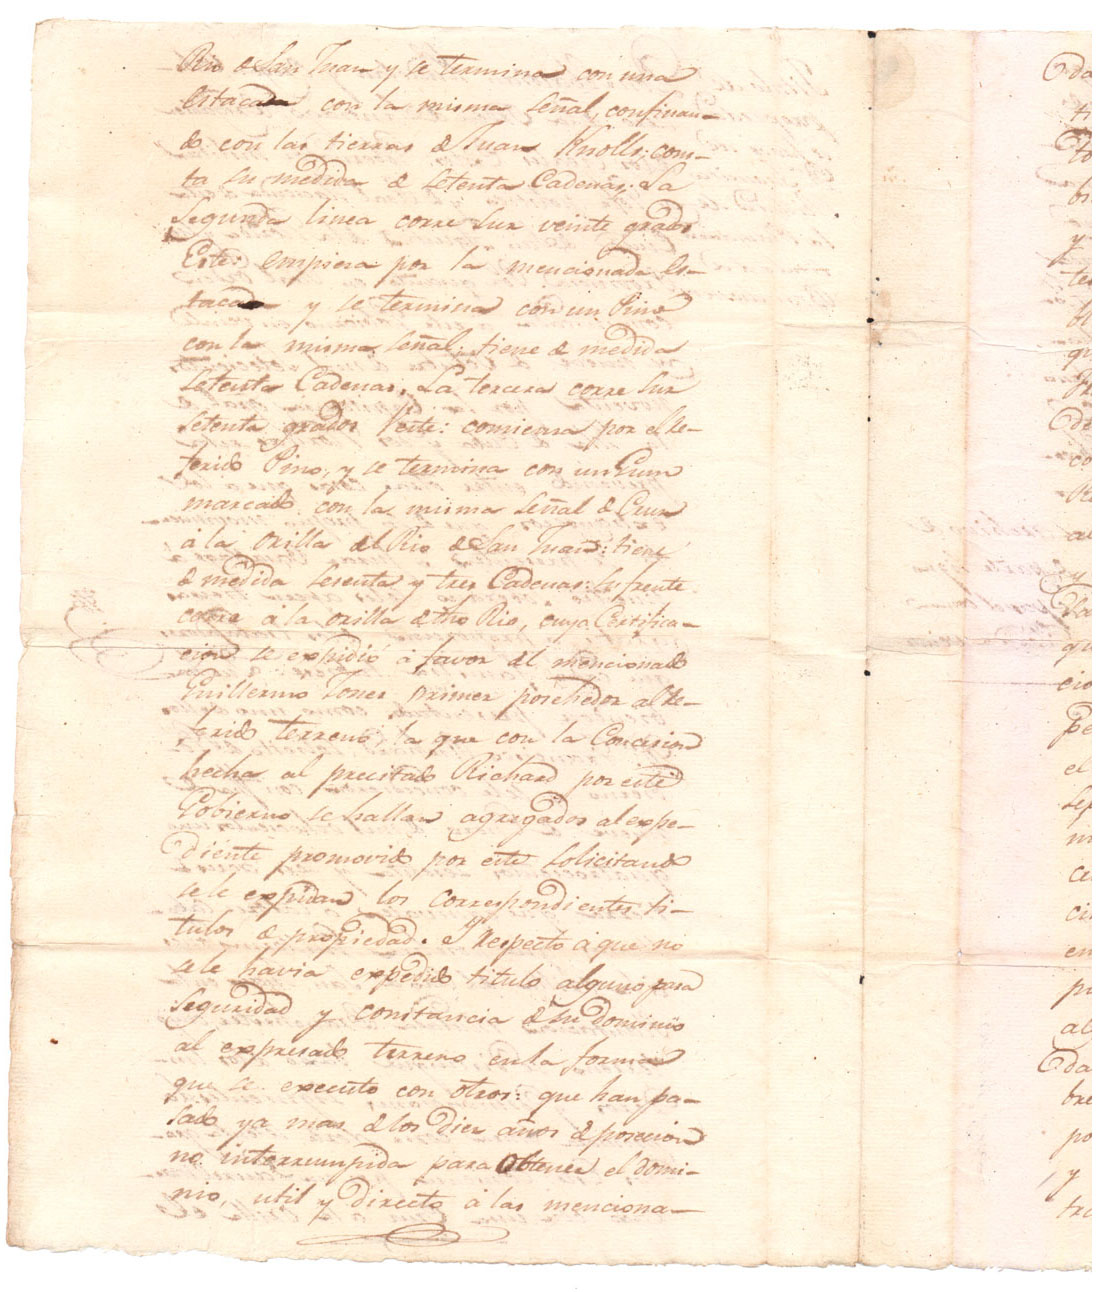 Rio de San Juan y se termina con una
estacada con la misma señal, confinan-
do con las tierras de Juan Knolls: cons-
ta su medida de setenta Cadenas. La
segunda linea corre sur veinte grados
Este: empiesa por la mencionada Es-
tacada y se termina con un Pino
con la misma señal: tiene de medida
setenta Cadenas. La tercera corre sur
setenta grados Veste: comiensa por el re-
ferido Pino, y se termina con un Gum
marcado con la misma señal de Cruz
á la orilla del Rio de San Juan: tiene
de medida sesenta y tres Cadenas: Su frente
corre á la orilla de dho Rio, cuya Certifica-
cion se expidió á favor del mencionado
Guillermo Jones primer posehedor al re-
ferido terreno la que con la Concesion
hecha al precitado Richard por este
Gobierno se hallan agregados al expe-
diente promovido por este solicitando
se le expidan los correspondientes ti-
tulos de propiedad. Y respecto á que no
se le havia expedido titulo alguno para
seguridad y constancia de su dominio
al expresado terreno en la forma
que se executo con otros: que han pa-
sado ya mas de los diez años de posecion
no interrumpida para obtener el domi-
nio, util y directo á las menciona-
da
ti
y
te
bl
qu
co
al
y
qu
cio
pe
el
se
m
ca
ci
en
pu
al
da
bre
po
y
tra